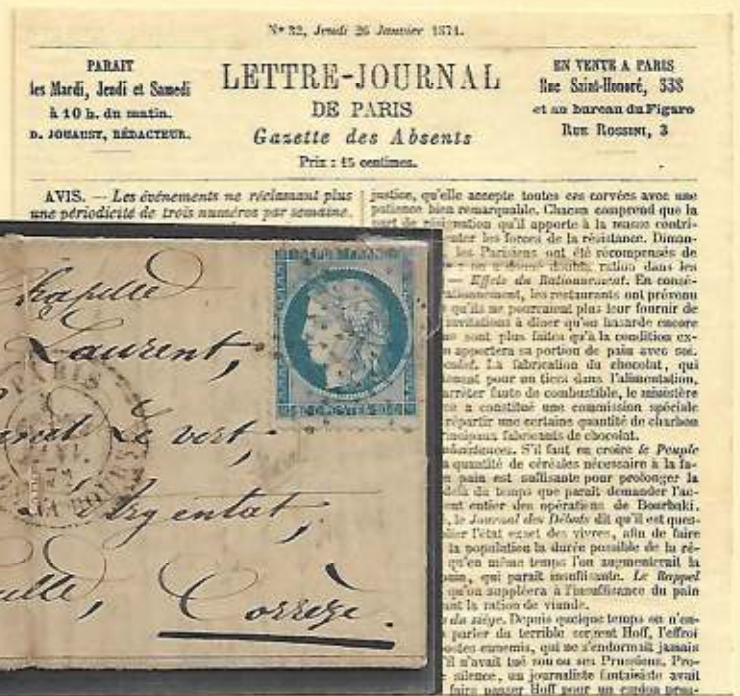 N° 32, Jeudi 26 Janvier 1871.
PARAIT
les Mardi, Jeudi et Samedi
à 10 h. du matin.
D. JOUAUST, RÉDACTEUR.
LETTRE-JOURNAL
DE PARIS
Gazette des Absents
Prix : 15 centimes.
EN VENTE A PARIS
Rue Saint-Honoré, 338
et au bureau du Figaro
RUE ROSSINI, 3
AVIS. — Les événements ne réclamant plus
une périodicité de trois numéros par semaine,
justice, qu'elle accepte toutes ces corvées avec une
patience bien remarquable. Chacun comprend que la
part de résignation qu'il apporte à la masse contri-
les forces de la résistance. Diman-
les Parisiens ont été récompensés de
on a donné double ration dans les
— Effets du Rationnement. En consé-
les restaurants ont prévenu
qu'ils ne pourraient plus leur fournir de
invitations à diner qu'on hasarde encore
ne sont plus faites qu'à la condition ex-
apportera sa portion de pain avec soi.
La fabrication du chocolat, qui
pour un tiers dans l'alimentation,
arrêter faute de combustible, le ministère
a constitué une commission spéciale
répartir une certaine quantité de charbon
principaux fabricants de chocolat.
S'il faut en croire le Peuple
quantité de céréales nécessaire à la fa-
pain est suffisante pour prolonger la
delà du temps que parait demander l'ac-
entier des opérations de Bourbaki.
le Journal des Débats dit qu'il est ques-
l'état exact des vivres, afin de faire
la population la durée possible de la ré-
qu'en même temps l'on augmenterait la
qui parait insuffisante. Le Rappel
qu'on suppléera à l'insuffisance du pain
la ration de viande.
du siége. Depuis quelque temps on n'en-
parler du terrible sergent Hoff, l'effroi
ennemis, qui ne s'endormait jamais
il n'avait tué son ou ses Prussiens. Pro-
silence, un journaliste fantaisiste avait
faire passer Hoff pour un espion prus-
REPUB FRANC
Chapelle
Laurent,
PARIS
Le vert,
Argentat,
Corrèze.